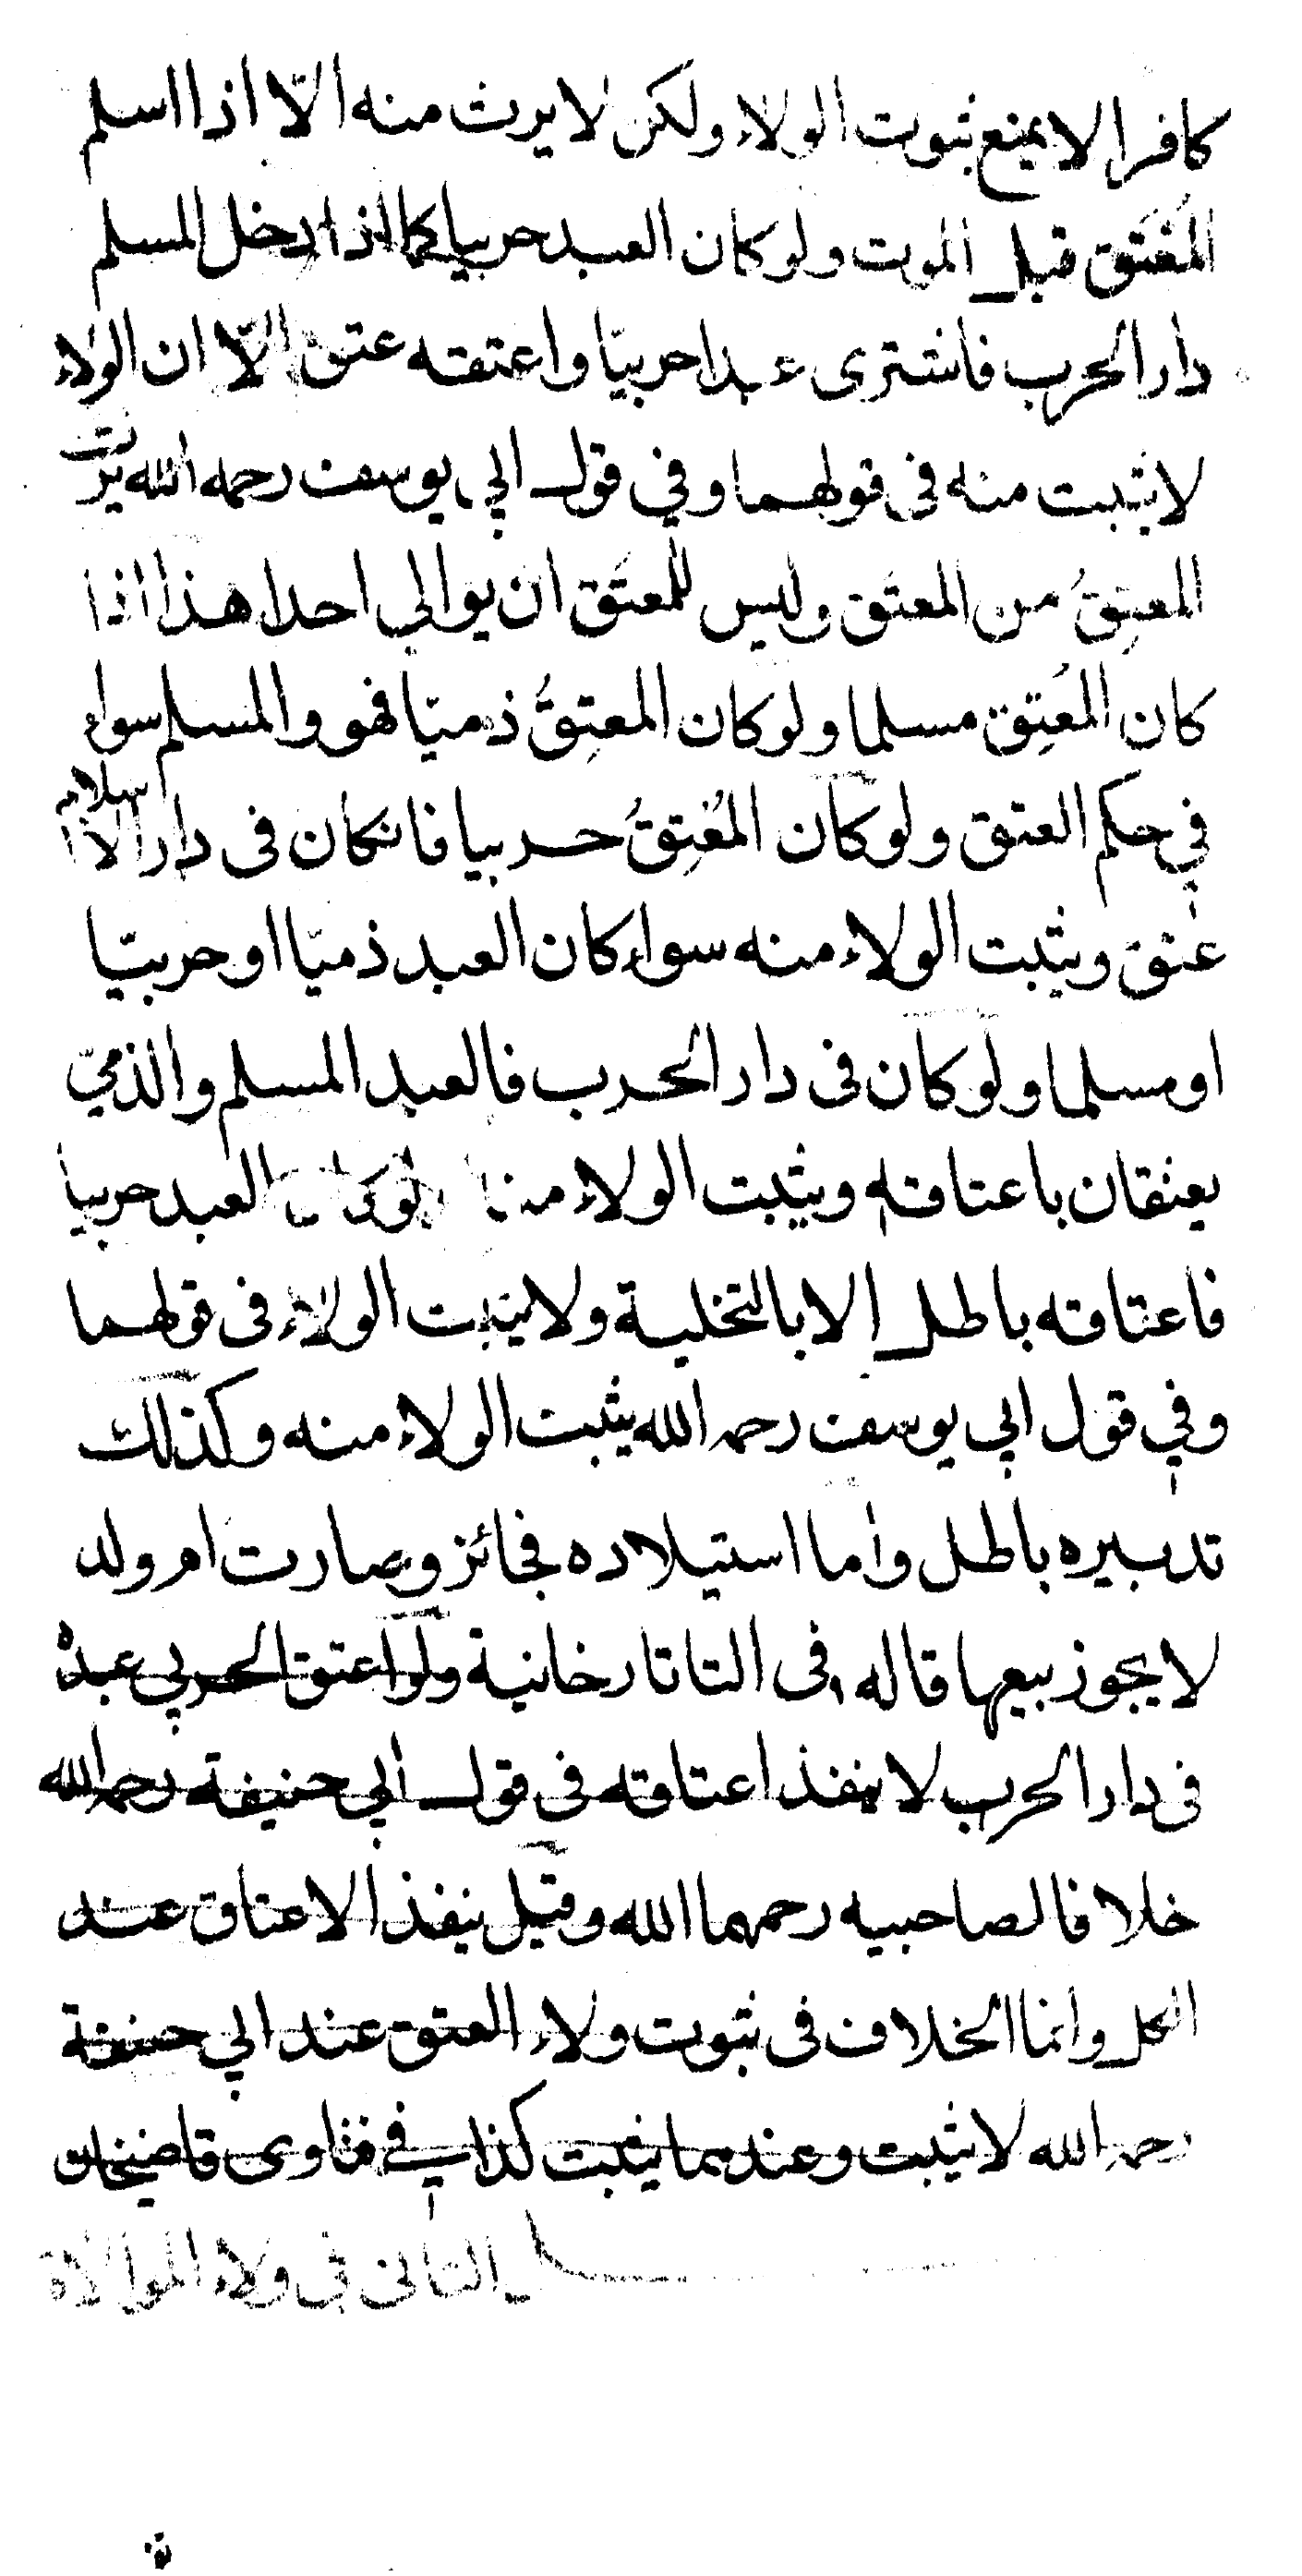 كافرا لا يمنع ثبوت الولاء ولكن لا يرث منه الّا اذا اسلم
المُعْتَق قبل الموت ولو كان العبد حربيا كما اذا دخل المسلم
دار الحرب فاشترى عبدا حربيّا واعتقه عتق الّا ان الولاء
لا يثبت منه فى قولهما وفي قول ابي يوسف رحمه الله يرث
المعتِقُ من المعتَق وليس للمعتَق ان يوالي احدا هذا اذا
كان المُعتِق مسلما ولو كان المعتِقُ ذميّا فهو والمسلم سواء
في حكم العتق ولو كان المُعْتِقُ حربيا فان كان فى دار الاسلام
عتق ويثبت الولاء منه سواء كان العبد ذميّا او حربيّا
او مسلما ولو كان فى دار الحرب فالعبد المسلم والذميّ
يعتقان باعتاقه ويثبت الولاء العبد حربيا
فاعتاقه باطل الا بالتخلية ولا يثبت الولاء فى قولهما
وفي قول ابي يوسف رحمه الله يثبت الولاء منه وكذلك
تدبيره باطل واما استيلاده فجائز وصارت ام ولد
لا يجوز بيعها قاله فى التاتارخانية ولو اعتق الحربي عبده
فى دار الحرب لا ينفذ اعتاقه فى قول ابي حنيفة رحمه الله
خلافا لصاحبيه رحمهما الله وقيل ينفذ الاعتاق عند
الكل وانما الخلاف فى ثبوت ولاء العتق عند ابي حنيفة
رحمه الله لا يثبت وعندهما يثبت كذا في فتاوى قاضيخان
الثانى فى ولاء الموالاة